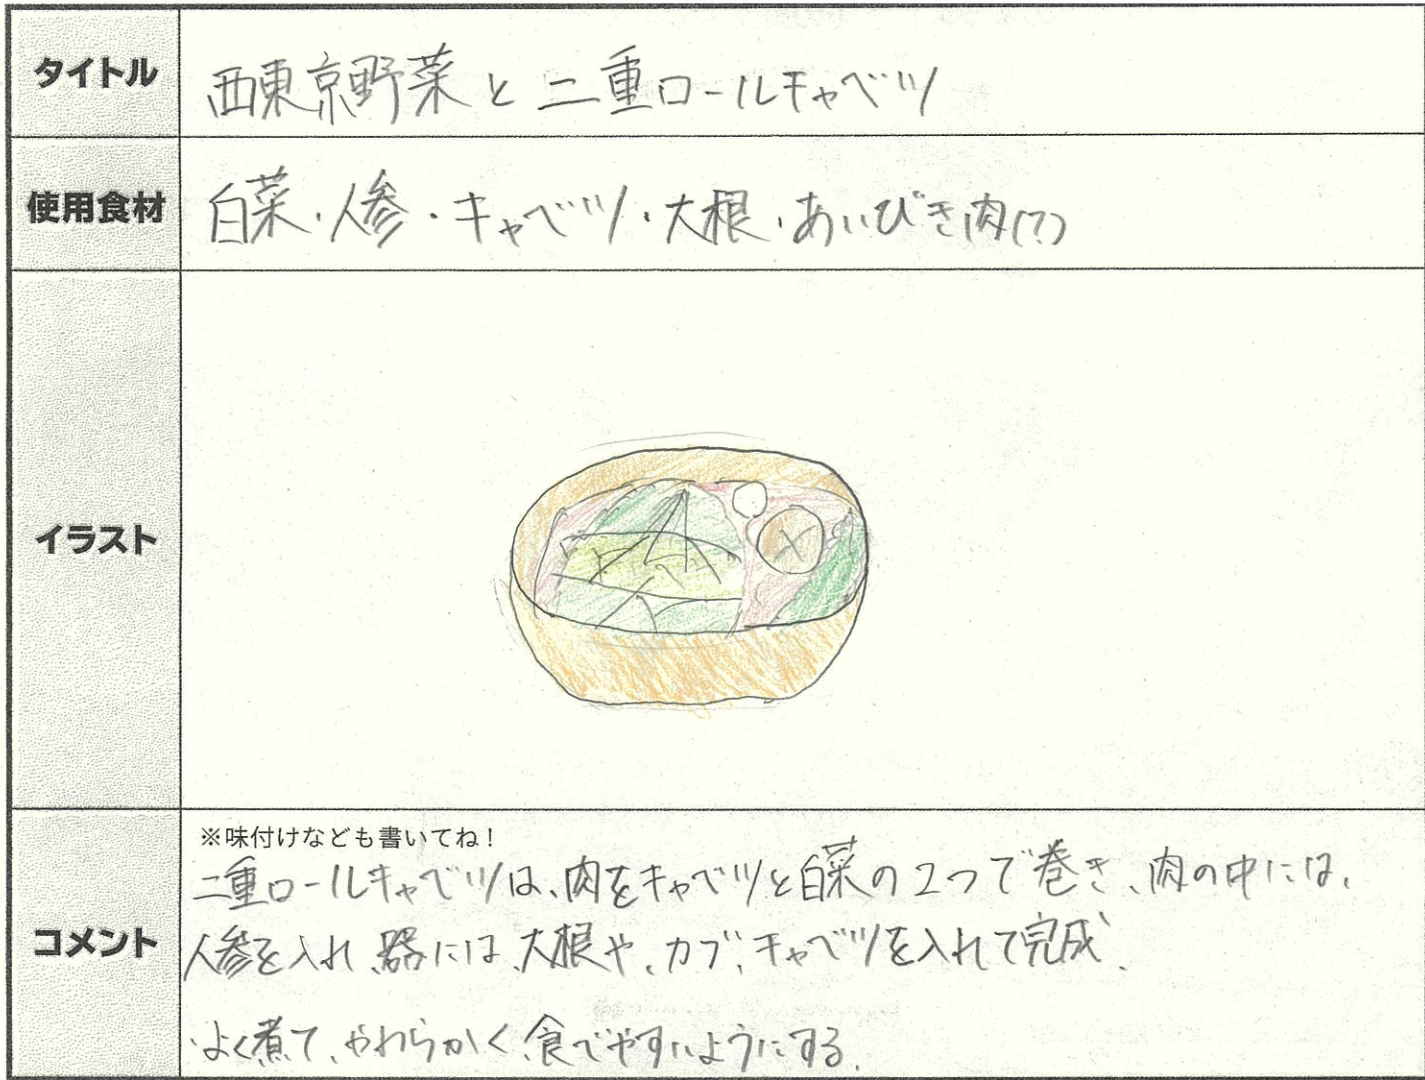 タイトル
西東京野菜と二重ロールキャベツ
使用食材
白菜・人参・キャベツ・大根・あいびき肉(?)
イラスト
コメント
※味付けなども書いてね！
二重ロールキャベツは、肉をキャベツと白菜の2つで巻き、肉の中には、
人参を入れ、器には、大根や、カブ、キャベツを入れて完成、
よく煮て、やわらかく、食べやすいようにする。